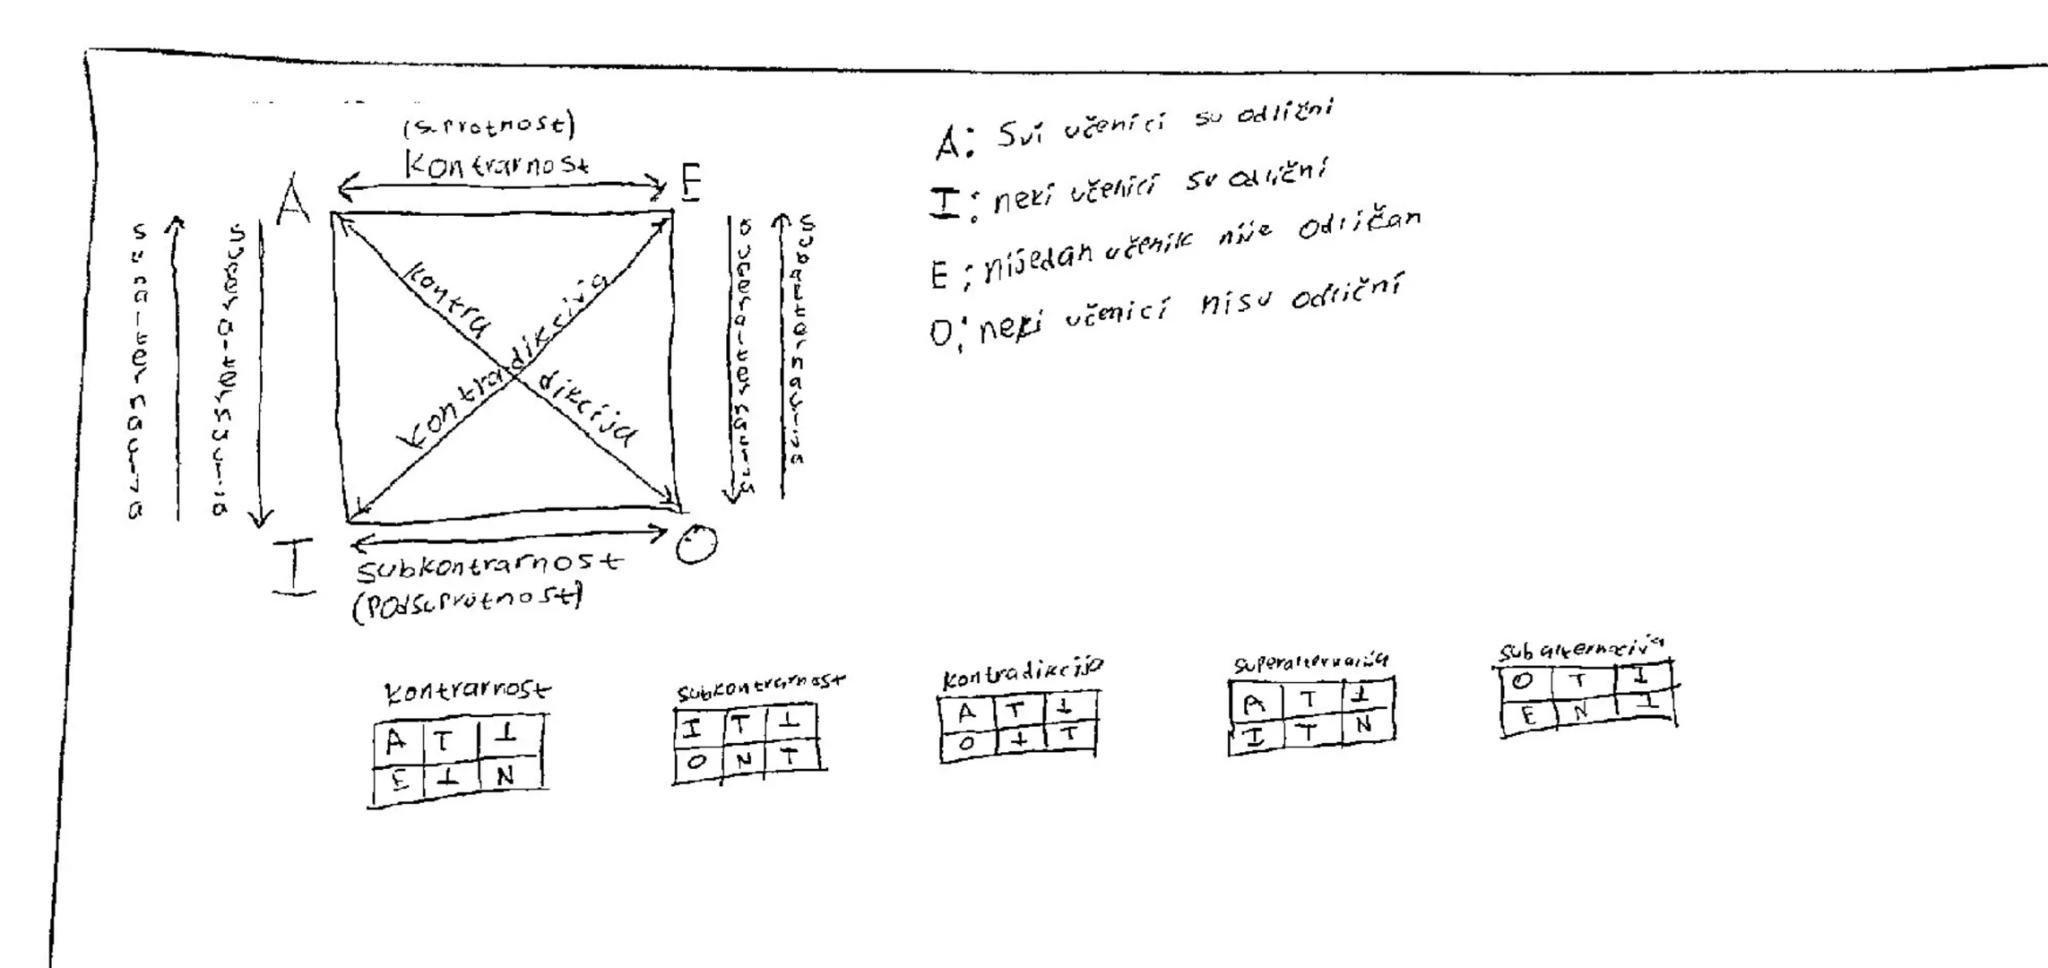 (suprotnost)
kontrarnost
A
E
subalternacija
superalternacija
superalternacija
subalternacija
kontra
dikcija
kontradikcija
I
O
subkontrarnost
(podsuprotnost)
A: Svi učenici su odlični
I: neki učenici su odlični
E: nijedan učenik nije odličan
O: neki učenici nisu odlični
kontrarnost
A T ⊥
E ⊥ N
subkontrarnost
I T ⊥
O N T
kontradikcija
A T ⊥
O ⊥ T
superalternacija
A T ⊥
I T N
subalternacija
O T ⊥
E N ⊥